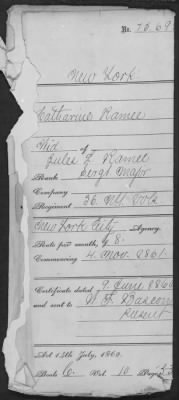 No. 75.69
New York
Catharine Ramee
Wid of
Jules F. Ramee
Rank Sergt Major
Company
Regiment 36. NY. Vols
New York City Agency.
Rate per month, $8.
Commencing 4 Nov. 1861
Certificate dated 9 June 186
and sent to W. F. Bascom
Present
Act 14th July, 1862.
Book C. Vol. 10 Page